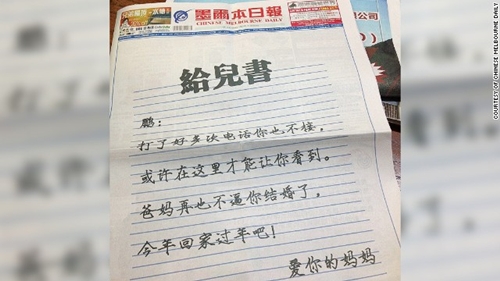 墨爾本日報
CHINESE MELBOURNE DAILY
給兒書
鹏：
打了好多次电话你也不接，
或许在这里才能让你看到。
爸妈再也不逼你结婚了，
今年回家过年吧！
爱你的妈妈
COURTESY OF CHINESE MELBOURNE DAILY